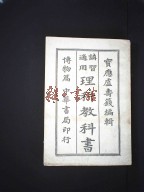 寶應盧壽籛編輯
講習適用
理科教科書
博物篇
中華書局印行